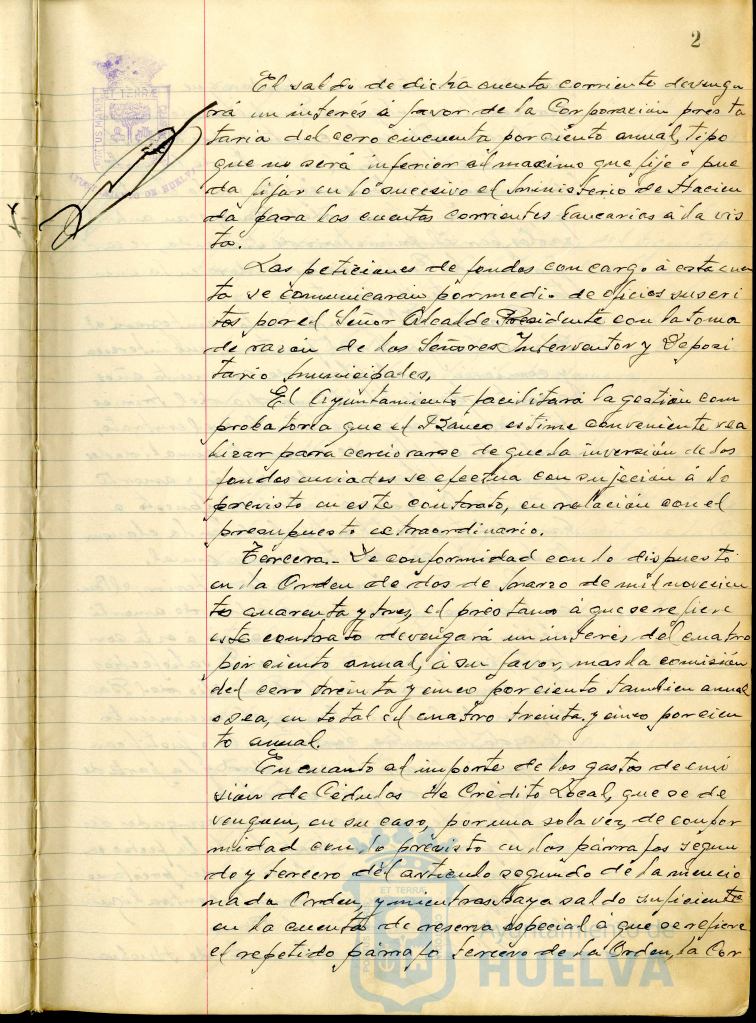 2
El saldo de dicha cuenta corriente devenga
rá un interés á favor de la Corporación presta
taria del cero cincuenta por ciento anual, tipo
que no será inferior al maximo que fije ó pue
da fijar en lo sucesivo el Ministerio de Hacien
da para las cuentas corrientes bancarias á la vis
ta.
Las peticiones de fondos con cargo á esta cuen
ta se comunicarán por medio de oficios suscri
tos por el Señor Alcalde Presidente con la toma
de razón de los Señores Interventor y Deposi
tario Municipales.
El Ayuntamiento facilitará la gestión com
probatoria que el Banco estime conveniente rea
lizar para cerciorarse de que la inversión de los
fondos enviados se efectua con sujeción á lo
previsto en este contrato, en relación con el
presupuesto extraordinario.
Tercera.- De conformidad con lo dispuesto
en la Orden de dos de Marzo de mil novecien
tos cuarenta y tres, el préstamo á que se refiere
este contrato devengará un interés del cuatro
por ciento anual, á su favor, mas la comisión
del cero treinta y cinco por ciento tambien anual
o sea, en total el cuatro treinta y cinco por cien
to anual.
En cuanto al importe de los gastos de emi
sión de Cédulas de Crédito Local, que se de
venguen, en su caso, por una sola vez, de confor
midad con lo previsto en los párrafos segun
do y tercero del articulo segundo de la mencio
nada Orden, y mientras haya saldo suficiente
en la cuenta de reserva especial á que se refiere
el repetido párrafo tercero de la Orden, la Cor
Ayuntamiento de
HUELVA